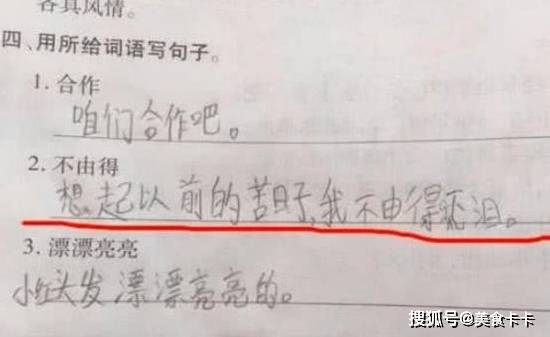 各具风情。
四、用所给词语写句子。
1. 合作
咱们合作吧。
2. 不由得
想起以前的苦日子,我不由得流泪。
3. 漂漂亮亮
小红头发漂漂亮亮的。
搜狐号@美食卡卡